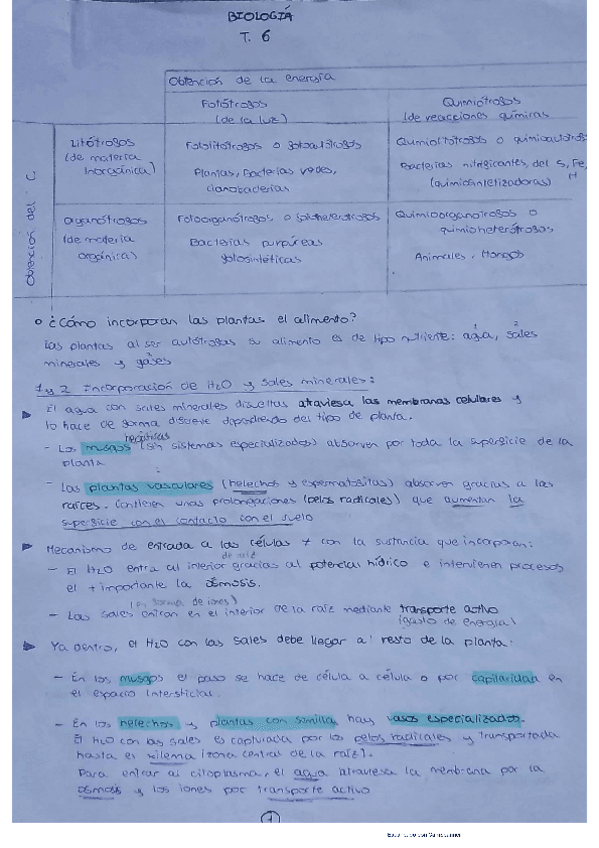 BIOLOGÍA
T. 6
Obtención de la energía
Fotótrofos
(de la luz)
Quimiótrofos
(de reacciones químicas
Obtención del C
Litótrofos
(de materia
Inorgánica)
Fotolitótrofos o fotoautótrofos
Plantas, Bacterias verdes,
cianobacterias
Quimiolitótrofos o quimioautótrofos
Bacterias nitrificantes, del S, Fe,
H
(quimiosintetizadoras)
organótrofos
(de materia
orgánica)
Fotoorganótrofos o fotoheterótrofos
Bacterias purpúreas
fotosintéticas
Quimioorganotrofos o
quimioheterótrofos
Animales, Hongos
o ¿Cómo incorporan las plantas el alimento?
Las plantas al ser autótrofas su alimento es de tipo nutriente: agua, sales
minerales y gases
1 y 2 Incorporación de H2O y sales minerales:
El agua con sales minerales disueltas atraviesa las membranas celulares y
lo hace de forma diferente dependiendo del tipo de planta.
- Los musgos (sin sistemas especializados) absorven por toda la superficie de la
planta
- Las plantas vasculares (helechos y espermatofitas) absorven gracias a las
raíces. Contienen unas prolongaciones (pelos radicales) que aumentan la
superficie con el contacto con el suelo
Mecanismo de entrada a las células + con la sustancia que incorporan:
- El H2O entra al interior gracias al potencial hídrico e intervienen procesos
el + importante la ósmosis.
(en forma de iones)
- Las sales entran en el interior de la raíz mediante transporte activo
(gasto de energía)
Ya dentro, el H2O con las sales debe llegar al resto de la planta:
- En los musgos el paso se hace de célula a célula o por capilaridad en
el espacio intersticial.
- En los helechos y plantas con similla hay vasos especializados.
El H2O con las sales es capturada por los pelos radicales y transportada
hasta el xilema (zona central de la raíz).
Para entrar al citoplasma, el agua atraviesa la membrana por la
ósmosis y los iones por transporte activo
1